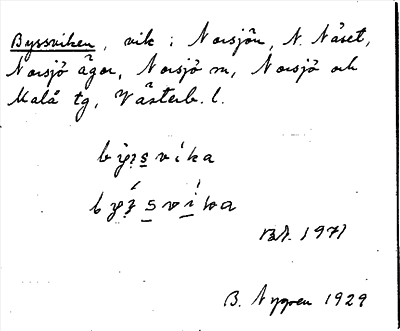 Byssviken, vik i Norsjön, N. Näset,
Norsjö ägor, Norsjö sn, Norsjö och
Malå tg, Västerb. l.
1971
B. Nygren 1929